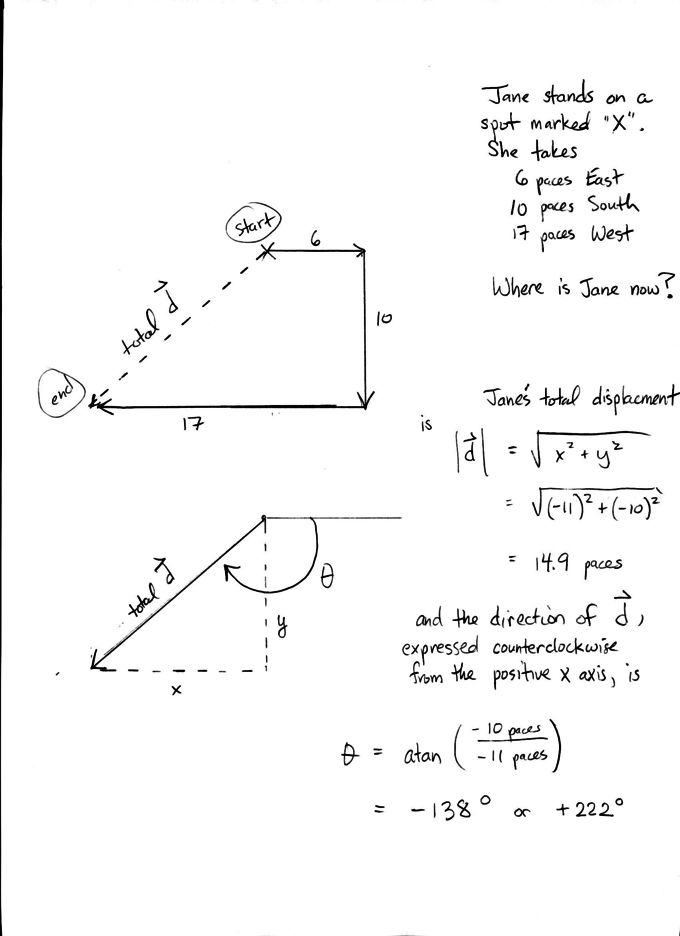 Jane stands on a
spot marked "X".
She takes
6 paces East
10 paces South
17 paces West
Where is Jane now?
start
6
total d⃗
10
end
17
Jane's total displacment
is |d⃗| = √(x² + y²)
= √((-11)² + (-10)²)
= 14.9 paces
total d⃗
θ
y
x
and the direction of d⃗,
expressed counterclockwise
from the positive x axis, is
θ = atan (-10 paces / -11 paces)
= -138° or +222°